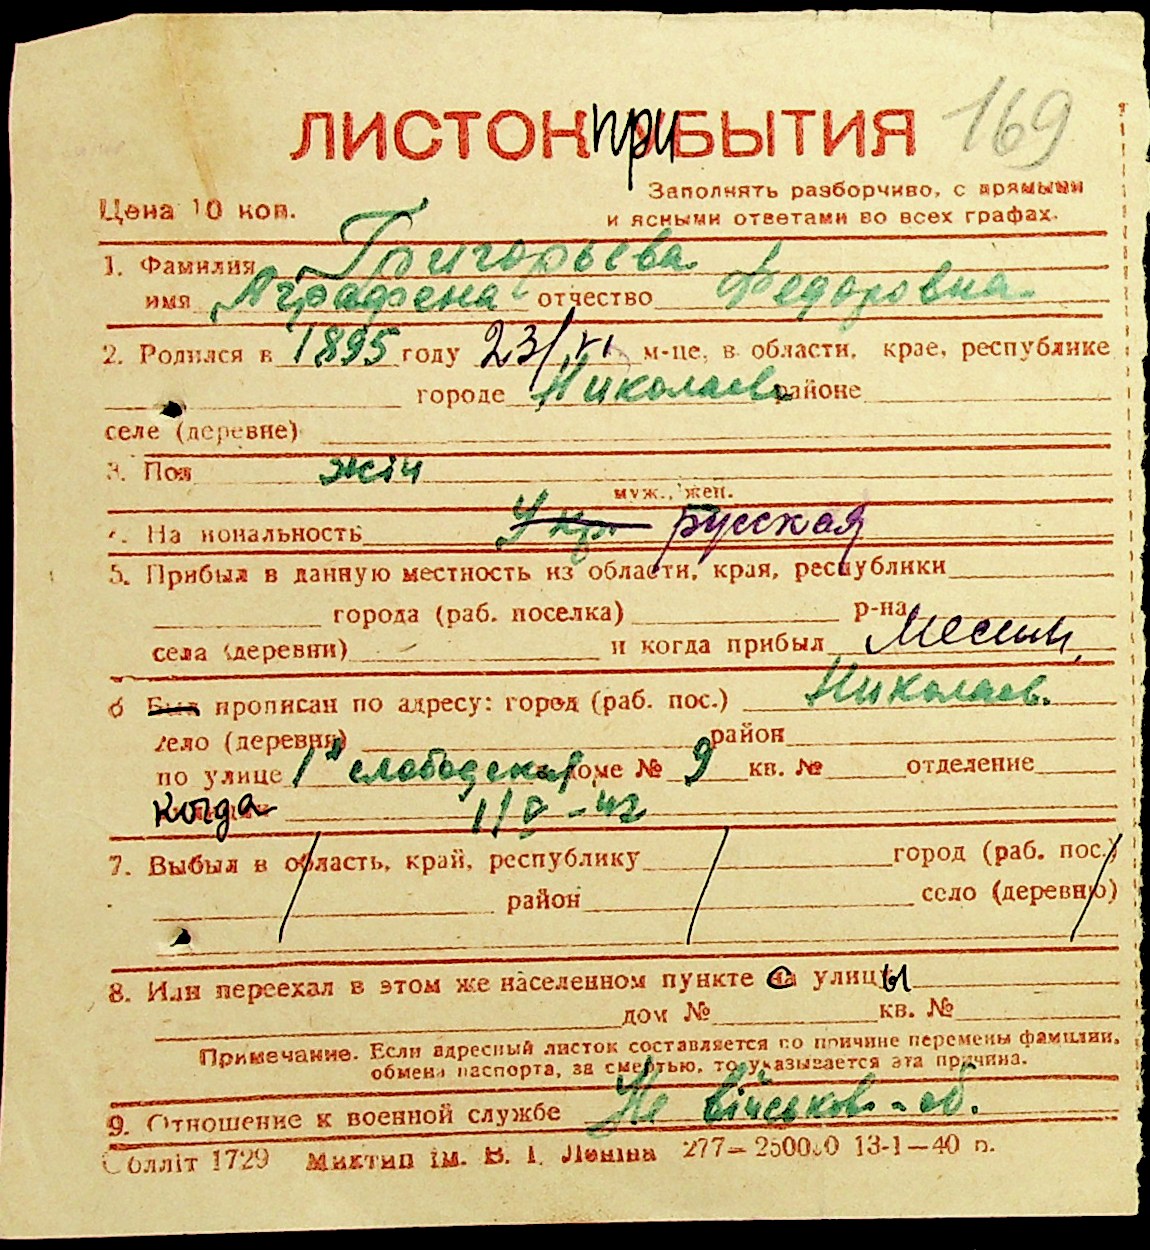 ЛИСТОК ПРИБЫТИЯ 169
Заполнять разборчиво, с прямыми
Цена 10 коп. и ясными ответами во всех графах.
1. Фамилия Григорьева
имя Аграфена отчество Федоровна
2. Родился в 1895 году 23/VI м-це, в области, крае, республике
городе Николаев районе
селе (деревне)
3. Пол жін
муж., жен.
Укр. русская
На иональность
5. Прибыл в данную местность из области, края, республики
города (раб. поселка) р-на
села (деревни) и когда прибыл Месин,
6 Был прописан по адресу: город (раб. пос.) Николаев.
село (деревня) район
по улице 1я слободская доме № 9 кв. № отделение
когда 1/V-42
7. Выбыл в область, край, республику город (раб. пос.)
район село (деревню)
8. Или переехал в этом же населенном пункте с улицы
дом № кв. №
Примечание. Если адресный листок составляется по причине перемены фамилии,
обмена паспорта, за смертью, то указывается эта причина.
9. Отношение к военной службе Не військов-об.
Облліт 1729 Миктип ім. В. І. Леніна 277—250000 13-1—40 р.